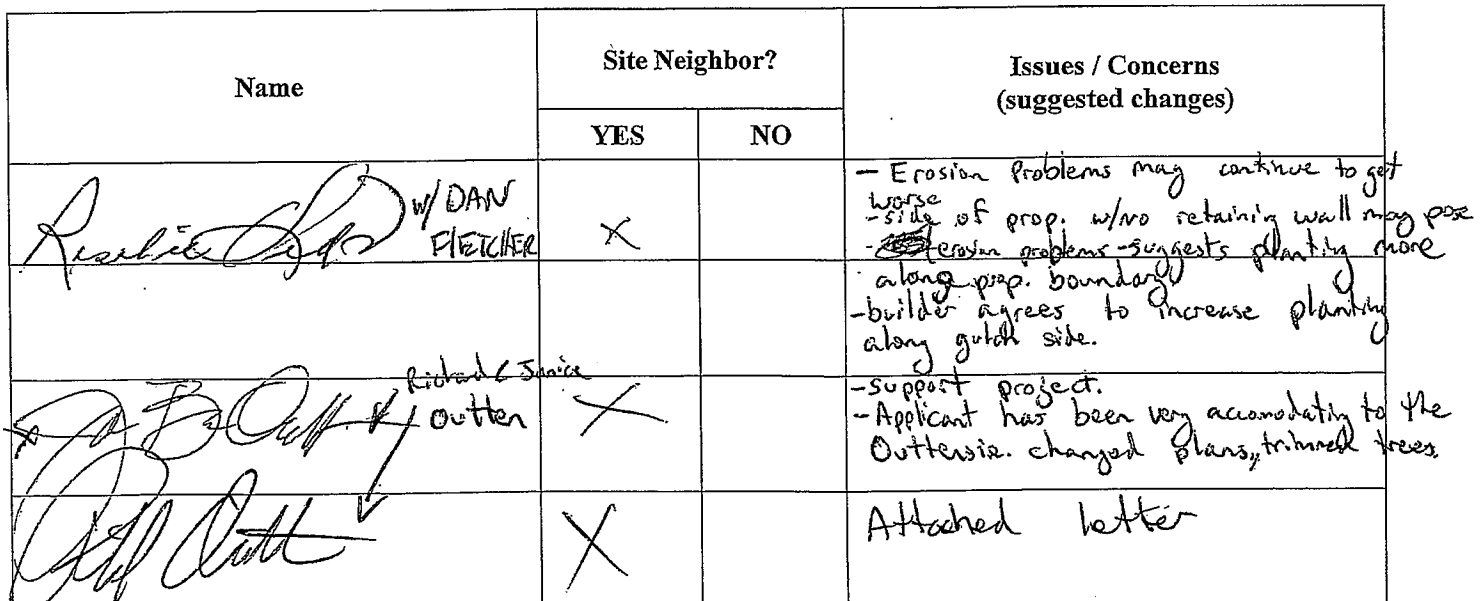 Name
Site Neighbor?
Issues / Concerns
(suggested changes)
YES
NO
w/ DAN
FLETCHER
X
- Erosion Problems may continue to get
worse
- side of prop. w/no retaining wall may pose
- erosion problems - suggests planting more
along prop. boundary
- builder agrees to increase planting
along gulch side.
Richard & Janice
Outten
X
- support project.
- Applicant has been very accomodating to the
Outtens ie. changed plans, trimmed trees.
X
Attached letter